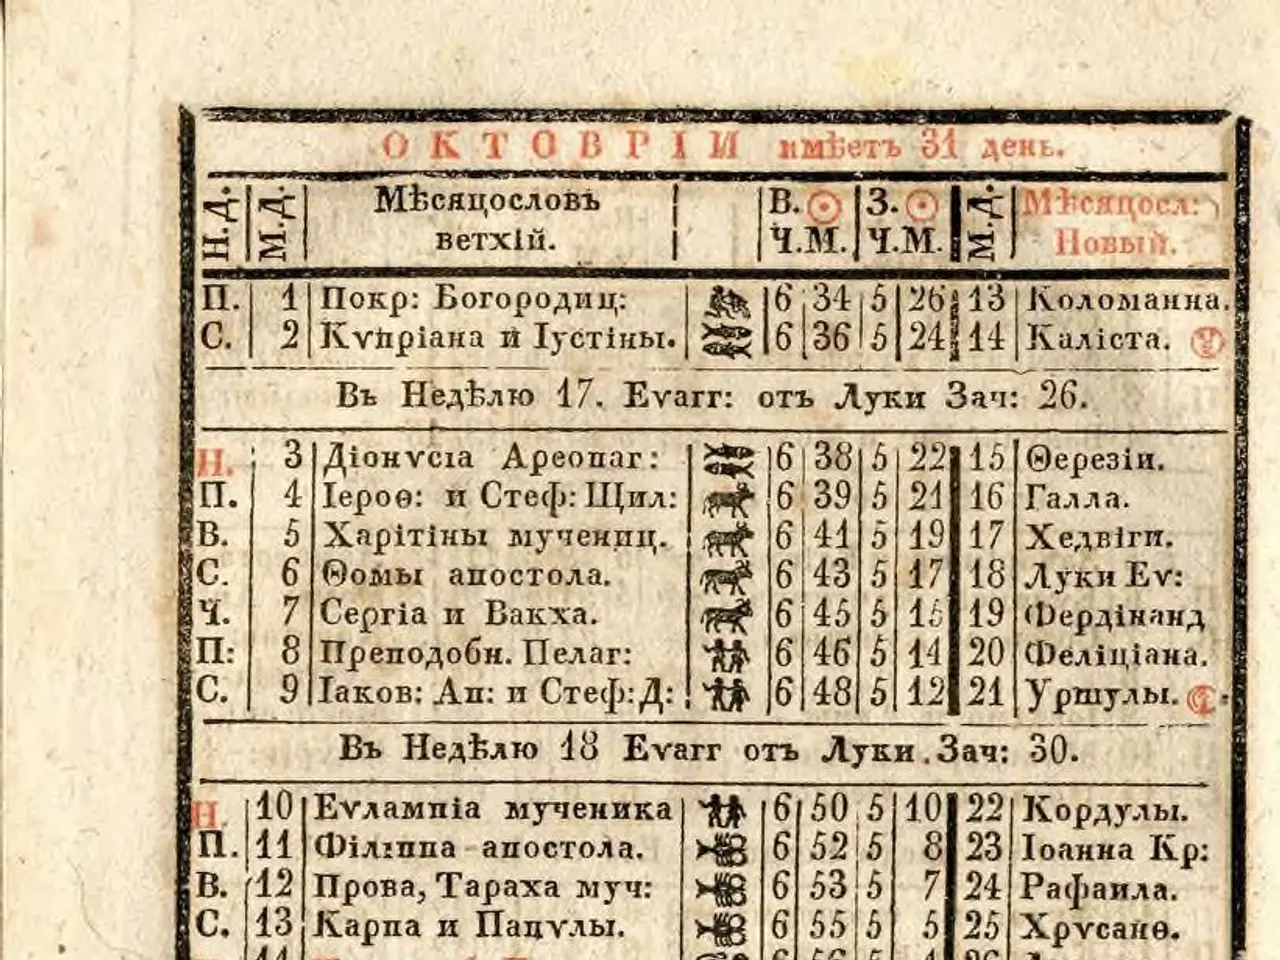 ОКТОВРІИ имѣетъ 31 день.
Н.Д. М.Д. Мѣсяцословъ ветхій. В.☉ Ч.М. З.☉ Ч.М. М.Д. Мѣсяцосл: Новый.
П. 1 Покр: Богородиц: 6 34 5 26 13 Коломанна.
С. 2 Кѵпріана и Іустіны. 6 36 5 24 14 Каліста.
Въ Недѣлю 17. Еѵагг: отъ Луки Зач: 26.
Н. 3 Діонѵсіа Ареопаг: 6 38 5 22 15 Ѳерезіи.
П. 4 Іероѳ: и Стеф: Щил: 6 39 5 21 16 Галла.
В. 5 Харітіны мучениц. 6 41 5 19 17 Хедвіги.
С. 6 Ѳомы апостола. 6 43 5 17 18 Луки Еѵ:
Ч. 7 Сергіа и Вакха. 6 45 5 15 19 Фердінанд
П: 8 Преподобн. Пелаг: 6 46 5 14 20 Феліціана.
С. 9 Іаков: Ап: и Стеф: Д: 6 48 5 12 21 Уршулы.
Въ Недѣлю 18 Еѵагг отъ Луки. Зач: 30.
Н. 10 Еѵлампіа мученика 6 50 5 10 22 Кордулы.
П. 11 Філіппа апостола. 6 52 5 8 23 Іоанна Кр:
В. 12 Прова, Тараха муч: 6 53 5 7 24 Рафаила.
С. 13 Карпа и Папѵлы. 6 55 5 5 25 Хрѵсанѳ.